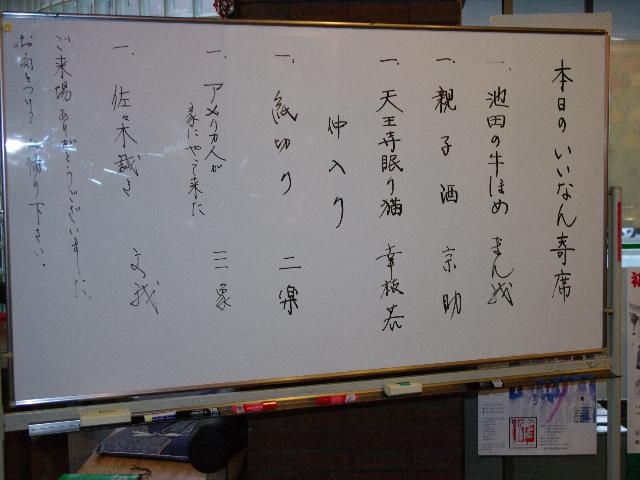 本日のいいなん寄席
一、池田の牛ほめ まん我
一、親子酒 京助
一、天王寺眠り猫 幸枝若
仲入り
一、紙切り 二楽
一、アメリカ人が
家にやって来た 三象
一、佐々木裁き 文我
ご来場ありがとうございました、
お気をつけてお帰り下さい。